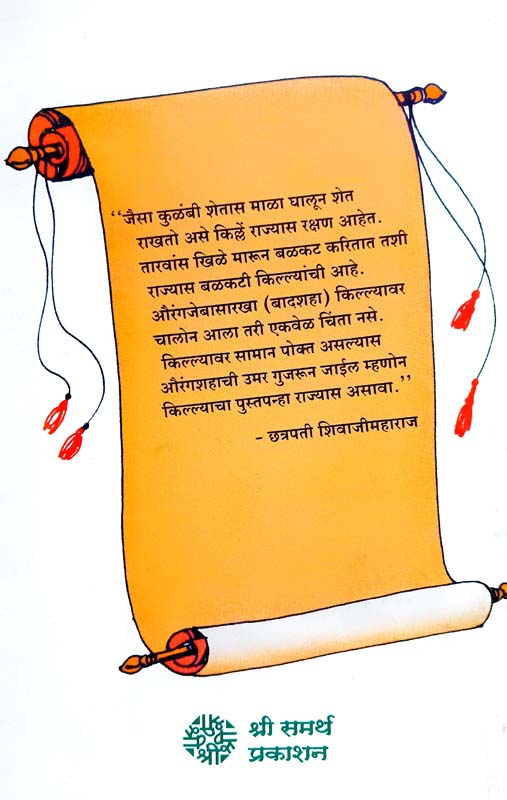 “जैसा कुळंबी शेतास माळा घालून शेत
राखतो असे किल्लें राज्यास रक्षण आहेत.
तारवांस खिळे मारून बळकट करितात तशी
राज्यास बळकटी किल्ल्यांची आहे.
औरंगजेबासारखा (बादशहा) किल्ल्यावर
चालोन आला तरी एकवेळ चिंता नसे.
किल्ल्यावर सामान पोक्त असल्यास
औरंगशहाची उमर गुजरून जाईल म्हणोन
किल्ल्याचा पुस्तपन्हा राज्यास असावा.”
- छत्रपती शिवाजीमहाराज
श्री समर्थ
प्रकाशन